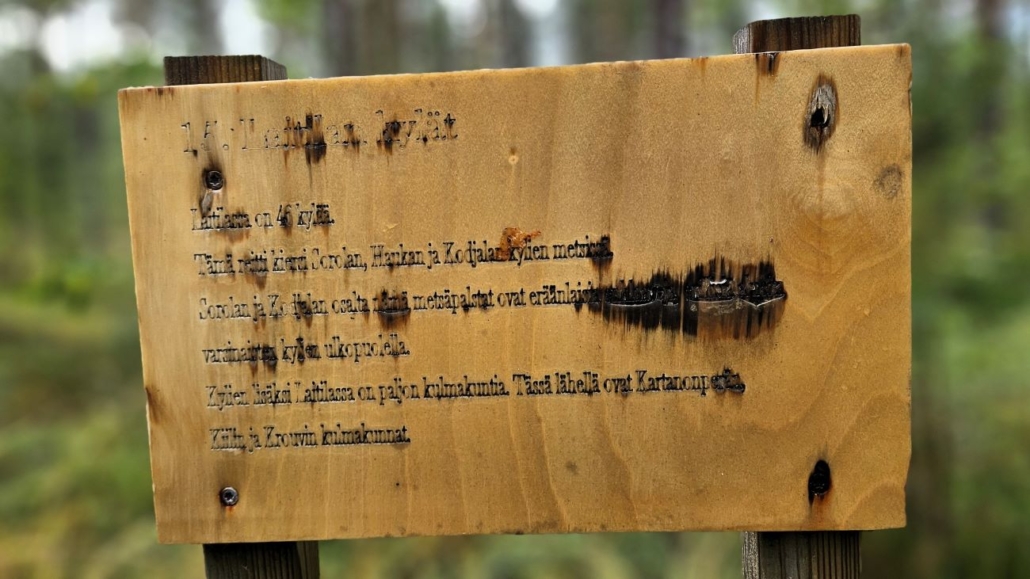 15. Laitilan kylät
Laitilassa on 46 kylää.
Tämä reitti kiersi Sorolan, Haukan ja Kodjalan kylien metsissä.
Sorolan ja Kodjalan osalta nämä metsäpalstat ovat eräänlaisia
varsinaisten kylien ulkopuolella.
Kylien lisäksi Laitilassa on paljon kulmakuntia. Tässä lähellä ovat Kartanonperän,
Kiilin, ja Krouvin kulmakunnat.